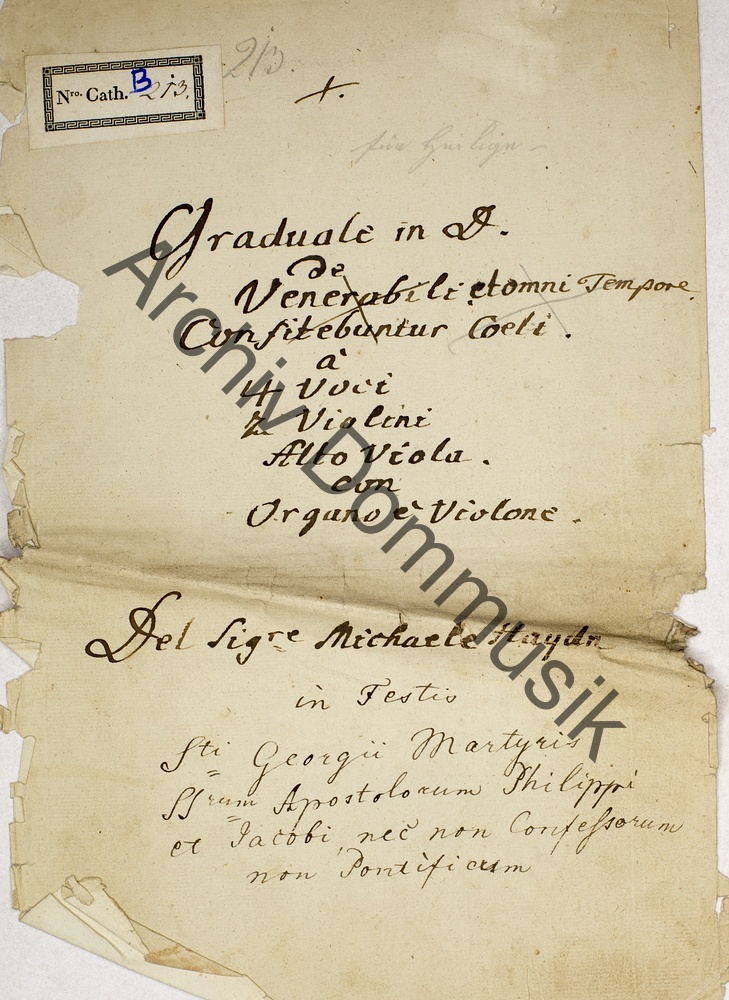 213.
Nro. Cath. B 213.
+.
für Heilige –
Graduale in D.
de
Venerabili. et omni Tempore.
Confitebuntur Coeli.
à
4 Voci
2 Violini
Alto Viola.
con
Organo è Violone.
Del Sigre Michaele Haydn
in Festis
Sti Georgii Martyris
SSrum Apostolorum Philippi
et Jacobi, nec non Confessorum
non Pontificum
Archiv Dommusik